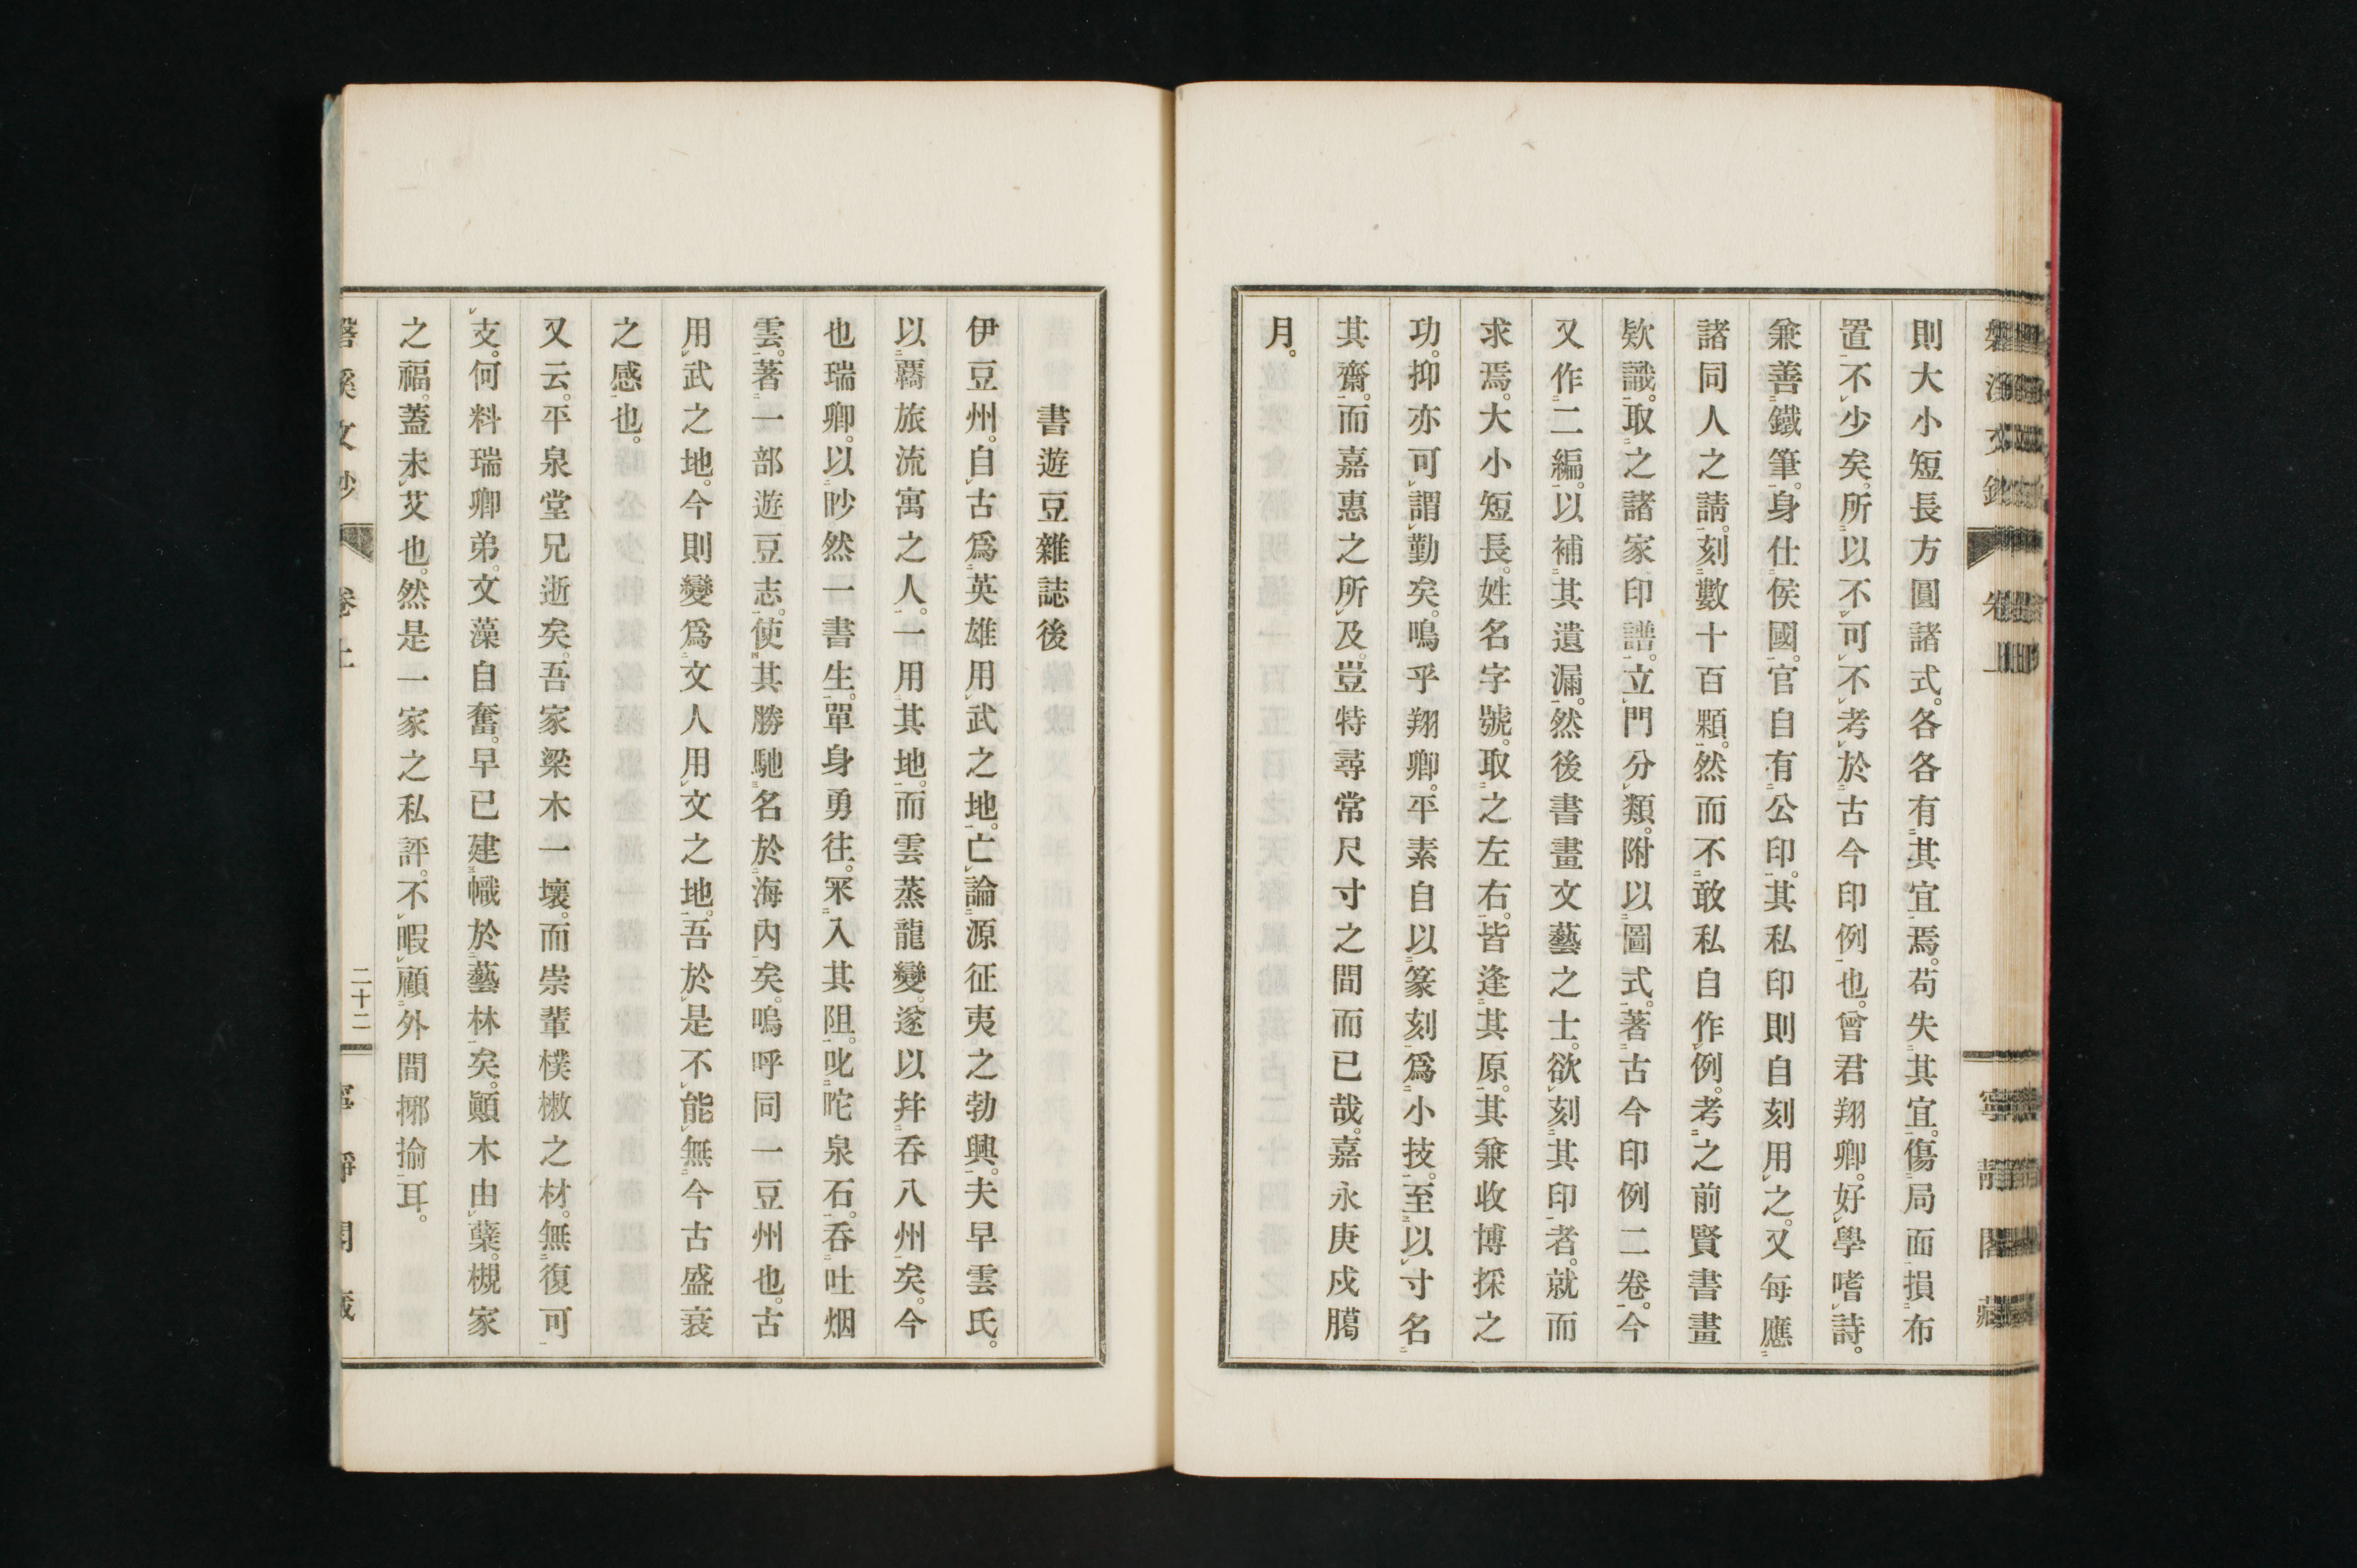 則大小短長方圓諸式。各各有其宜焉。苟失其宜。傷局面損布
置不少矣。所以不可不考於古今印例也。曾君翔卿。好學嗜詩。
兼善鐵筆。身仕侯國。官自有公印。其私印則自刻用之。又每應
諸同人之請。刻數十百顆。然而不敢私自作例。考之前賢書畫
欵識。取之諸家印譜。立門分類。附以圖式。著古今印例二卷。今
又作二編。以補其遺漏。然後書畫文藝之士。欲刻其印者。就而
求焉。大小短長。姓名字號。取之左右。皆逢其原。其兼收博採之
功。抑亦可謂勤矣。嗚乎翔卿。平素自以篆刻爲小技。至以寸名
其齋。而嘉惠之所及。豈特尋常尺寸之間而已哉。嘉永庚戌臈
月。
書遊豆雜誌後
伊豆州。自古爲英雄用武之地。亡論源征夷之勃興。夫早雲氏。
以覊旅流寓之人。一用其地。而雲蒸龍變。遂以幷呑八州矣。今
也瑞卿。以眇然一書生。單身勇往。冞入其阻。叱咜泉石。呑吐烟
雲。著一部遊豆志。使其勝馳名於海內矣。嗚呼同一豆州也。古
用武之地。今則變爲文人用文之地。吾於是不能無今古盛衰
之感也。
又云。平泉堂兄逝矣。吾家梁木一壞。而崇輩樸樕之材。無復可
支。何料瑞卿弟。文藻自奮。早已建幟於藝林矣。顚木由蘖。槻家
之福。蓋未艾也。然是一家之私評。不暇顧外間揶揄耳。
卷上
二十二
寧靜閣藏